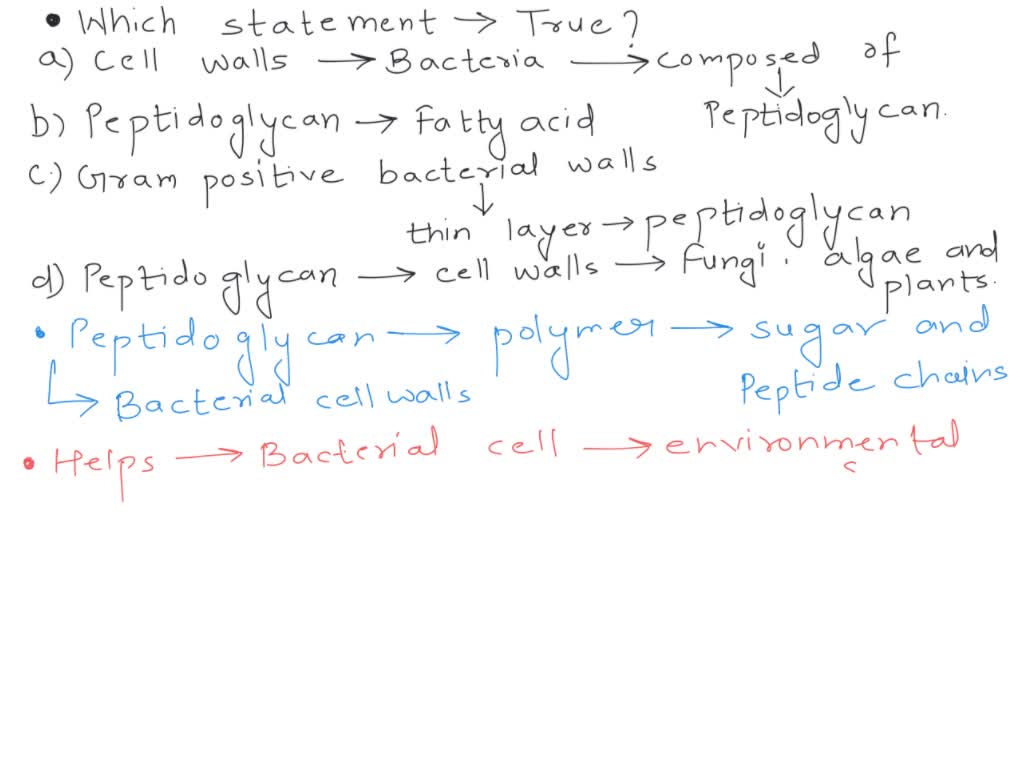 • Which statement → True?
a) Cell walls → Bacteria → composed of
↓
Peptidoglycan.
b) Peptidoglycan → Fatty acid
c.) Gram positive bacterial walls
↓
thin layer → peptidoglycan
d) Peptidoglycan → cell walls → Fungi. algae and
plants.
• Peptidoglycan → polymer → sugar and
Peptide chains
↳ Bacterial cell walls
• Helps → Bacterial cell → environmental
s